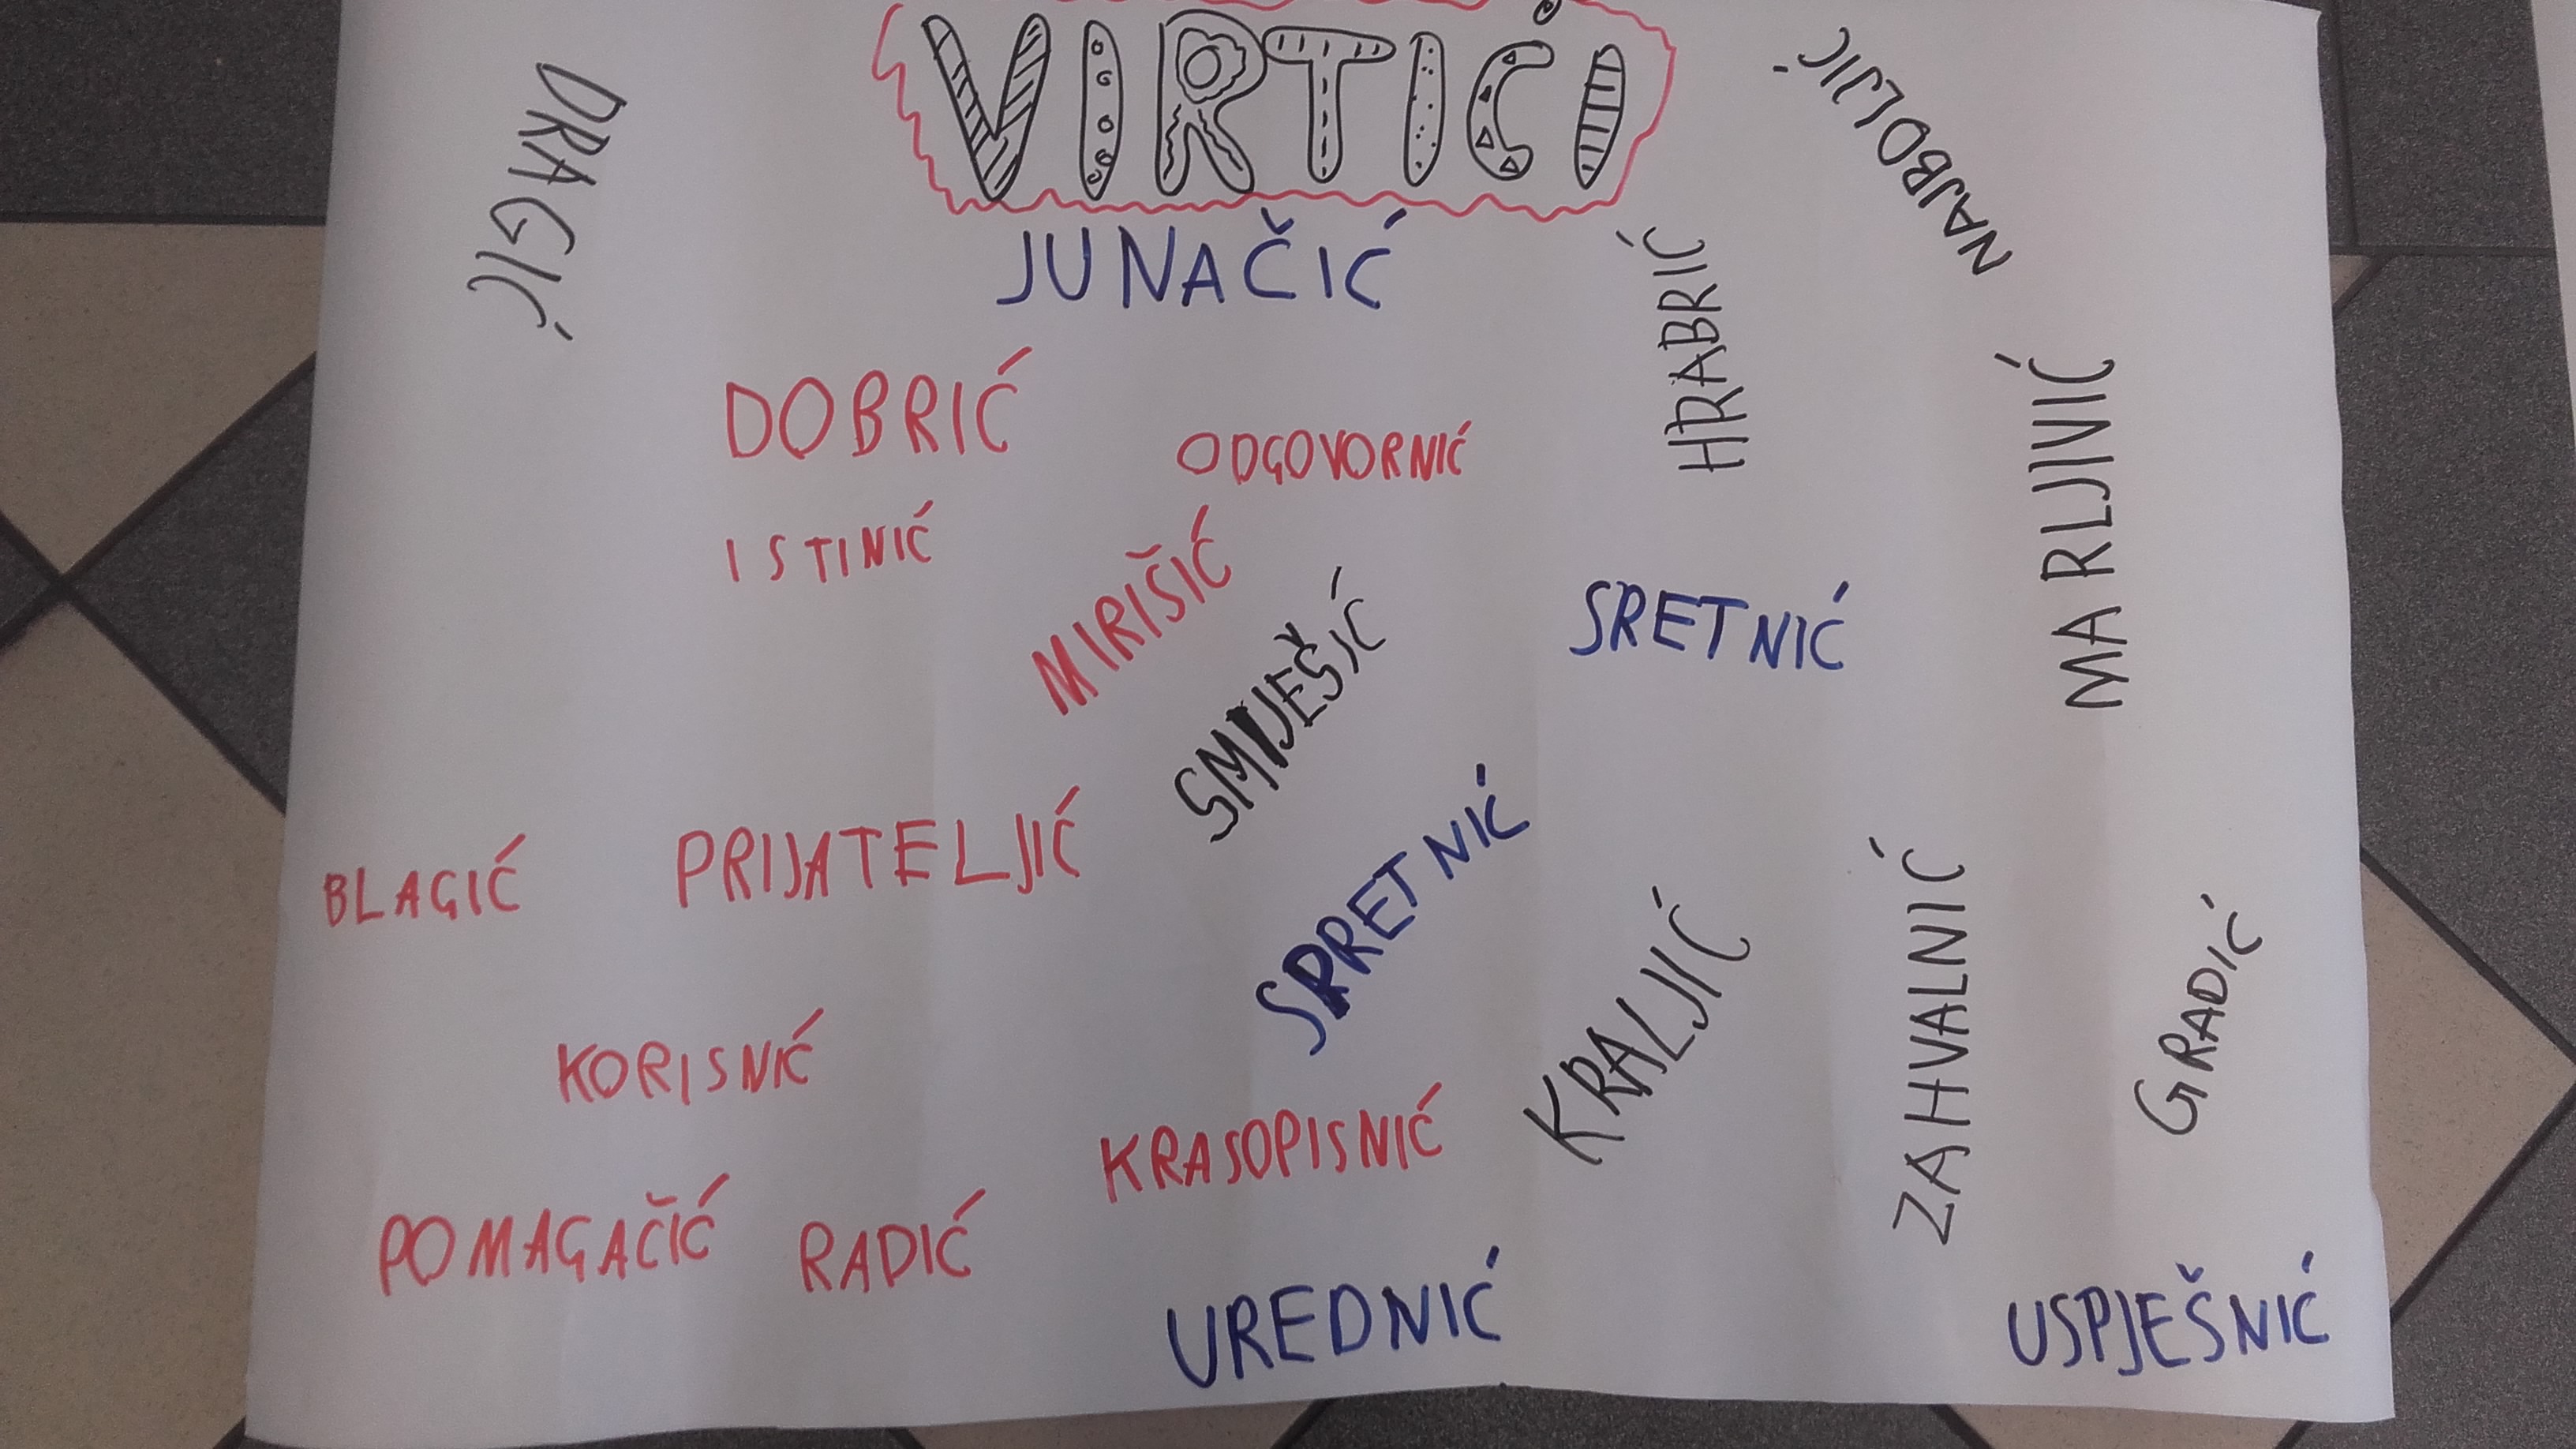 VIRTIĆI
DRAGIĆ
NAJBOLJIĆ
JUNAČIĆ
HRABRIĆ
DOBRIĆ
ODGOVORNIĆ
MARLJIVIĆ
ISTINIĆ
MIRIŠIĆ
SMIJEŠIĆ
SRETNIĆ
BLAGIĆ
PRIJATELJIĆ
SPRETNIĆ
KRALJIĆ
ZAHVALNIĆ
GRADIĆ
KORISNIĆ
KRASOPISNIĆ
POMAGAČIĆ
RADIĆ
UREDNIĆ
USPJEŠNIĆ